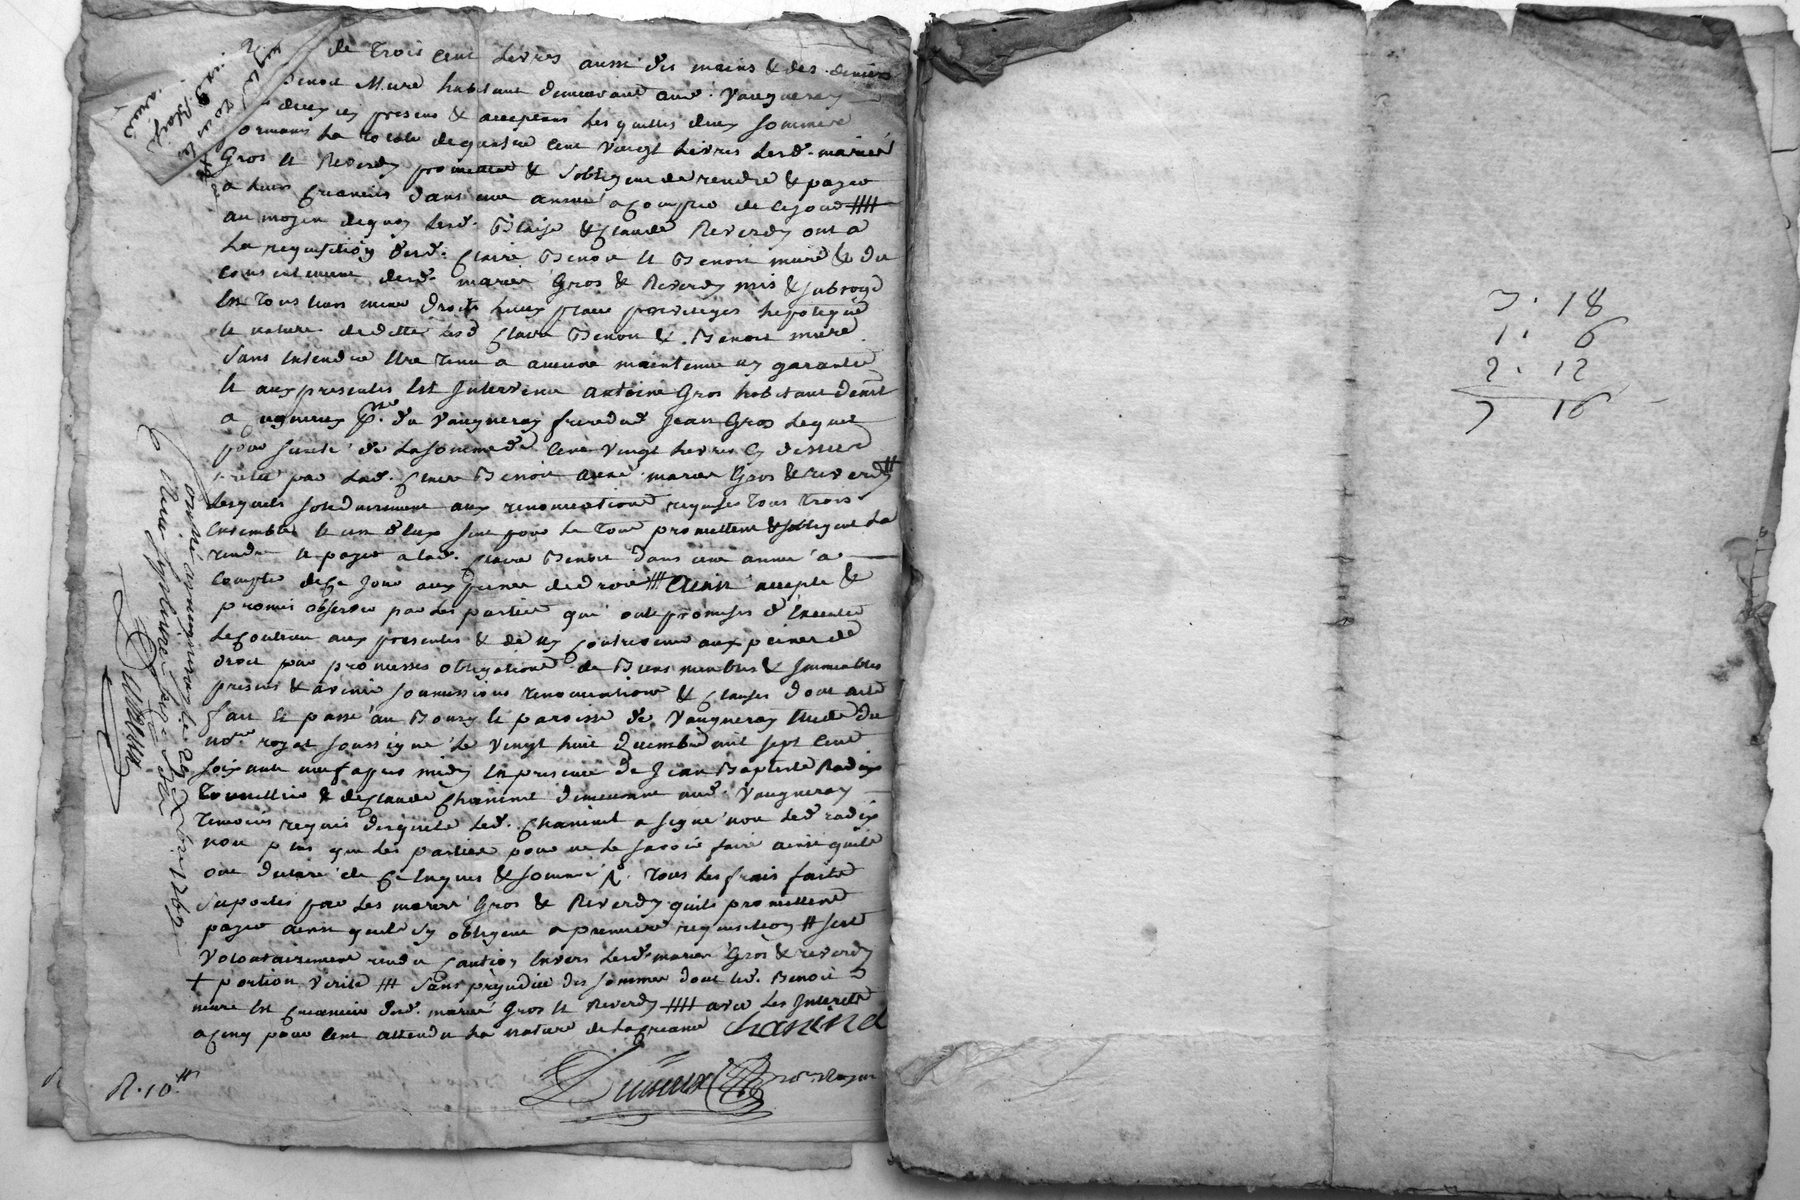 de trois cent Livres aussi des mains & des deniers
Benoit Mure habitant demeurant aud. Vaugneray
presens & acceptans Lesquelles deux sommes
La totale de quatre cent vingt Livres Lesd. mariés
Gros & Reverdy promettent & s'obligent de rendre & payer
a leurs creanciers dans une année a compter de ce jour #
au moyen dequoy Lesd. Blaise & Claude Reverdy ont a
La requisition desd. Claire Benoit et Benoit mure & du
consentement desd. mariés Gros & Reverdy mis & subrogé
En tous leurs mêmes droits lieux place privileges hipoteque
et nature de dette lesd Claire Benoit & Benoit mure
sans entendre etre tenu a aucune maintenue ny garantie
Et aux presentes Est Intervenu antoine Gros habitant demt
a psse. de Vaugneray frere dud Jean Gros Lequel
pour sureté de La somme de cent vingt Livres cy dessus
pretée par lad. Claire Benoit auxd. mariés Gros & reverdy #
Lesquels solidairement aux renonciations requises tous trois
Ensemble et un d'eux seul pour Le tout promettent & s'obligent La
rendre et payer a lad. Claire Benoit dans une année a
compter de ce jour aux peines de droit # Ainsi accepté &
promis observer par Les parties qui ont promises d'Executer
Le contenu aux presentes & de ny contrevenir aux peines de
droit pour promesses obligations de Biens meubles & Immeubles
presens & avenir soumissions renonciations & clauses dont acte
fait et passé au Bourg et paroisse de Vaugneray Etude du
nore. royal soussigné Le vingt huit decembre mil sept cent
soixante neuf apres midy En presence de Jean Baptiste Radix
& de Claude Chaninel demeurant aud. Vaugneray
temoins requis desquels Led. Chaninel a signé non Led radix
non plus que Les parties pour ne Le savoir faire ainsi quils
ont declaré de ce Enquis & sommé &. tous Les frais faits
suportés par Les mariés Gros & Reverdy quils promettent
payer ainsi quils sy obligent a premiere requisition # sest
Volontairement rendu caution Envers Lesd. mariés Gros & reverdy
+ portion verité # sans prejudice des sommes dont led. Benoit
mure Est creancier desd. mariés Gros et Reverdy # avec Les Interets
a cinq pour cent attendu La nature de La creance Chaninel
R. 10
7. 18
1. 6
2. 12
7 16